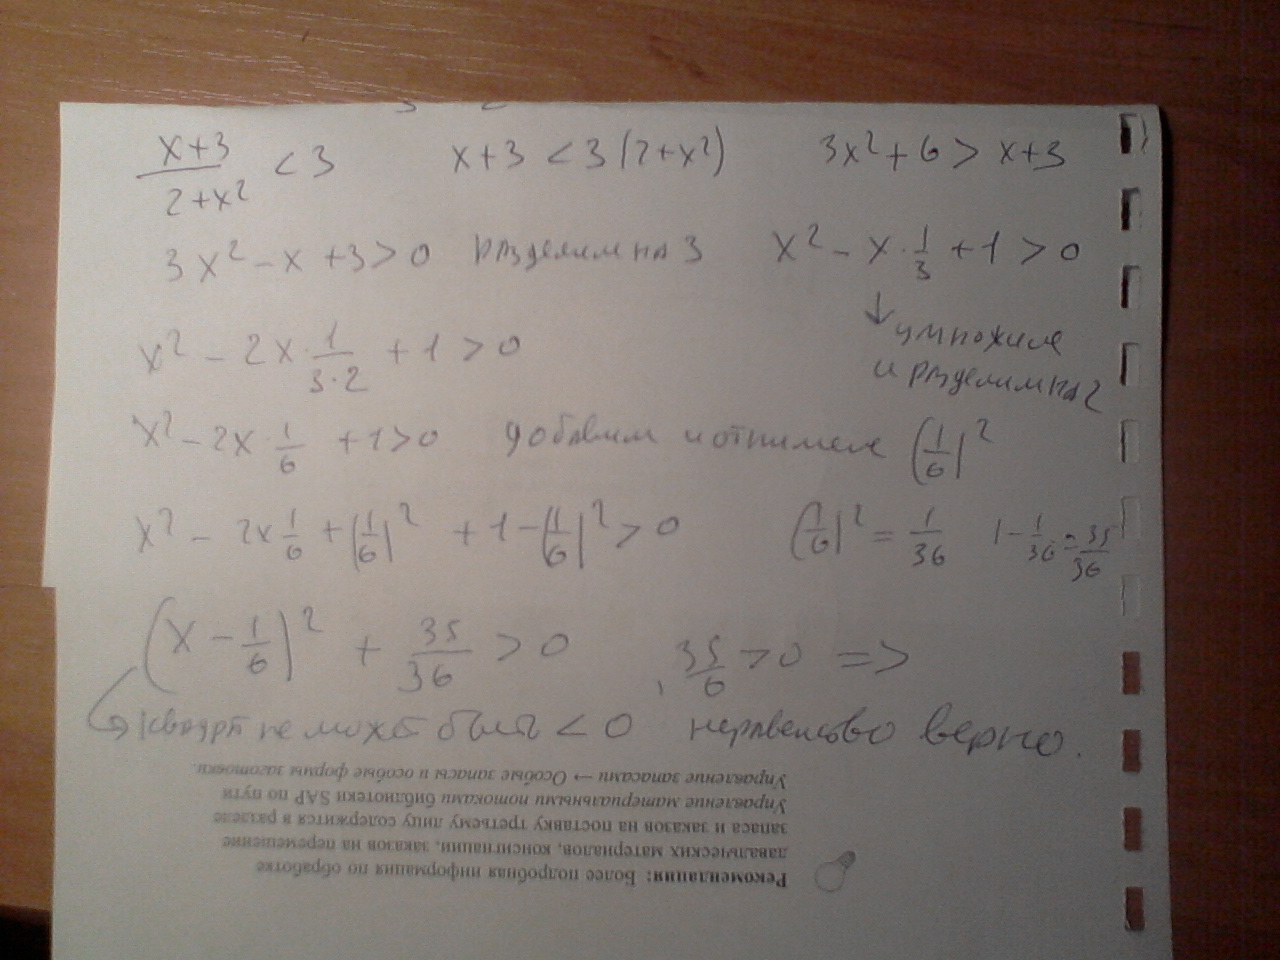 x+3/2+x² < 3 x+3 < 3(2+x²) 3x²+6 > x+3
3x²-x+3>0 разделим на 3 x²-x·1/3+1>0
↓ умножим
и разделим на 2
x²-2x·1/3·2+1>0
x²-2x·1/6+1>0 добавим и отнимем (1/6)²
x²-2x1/6+(1/6)²+1-(1/6)²>0 (1/6)²=1/36 1-1/36=35/36
(x-1/6)²+35/36>0 35/6>0 =>
квадрат не может быть <0 неравенство верно.
Рекомендация: Более подробная информация по обработке
давальческих материалов, консигнации, заказов на перемещение
запаса и заказов на поставку третьему лицу содержится в разделе
Управление материальными потоками библиотеки SAP по пути
Управление запасами → Особые запасы и особые формы заготовки.